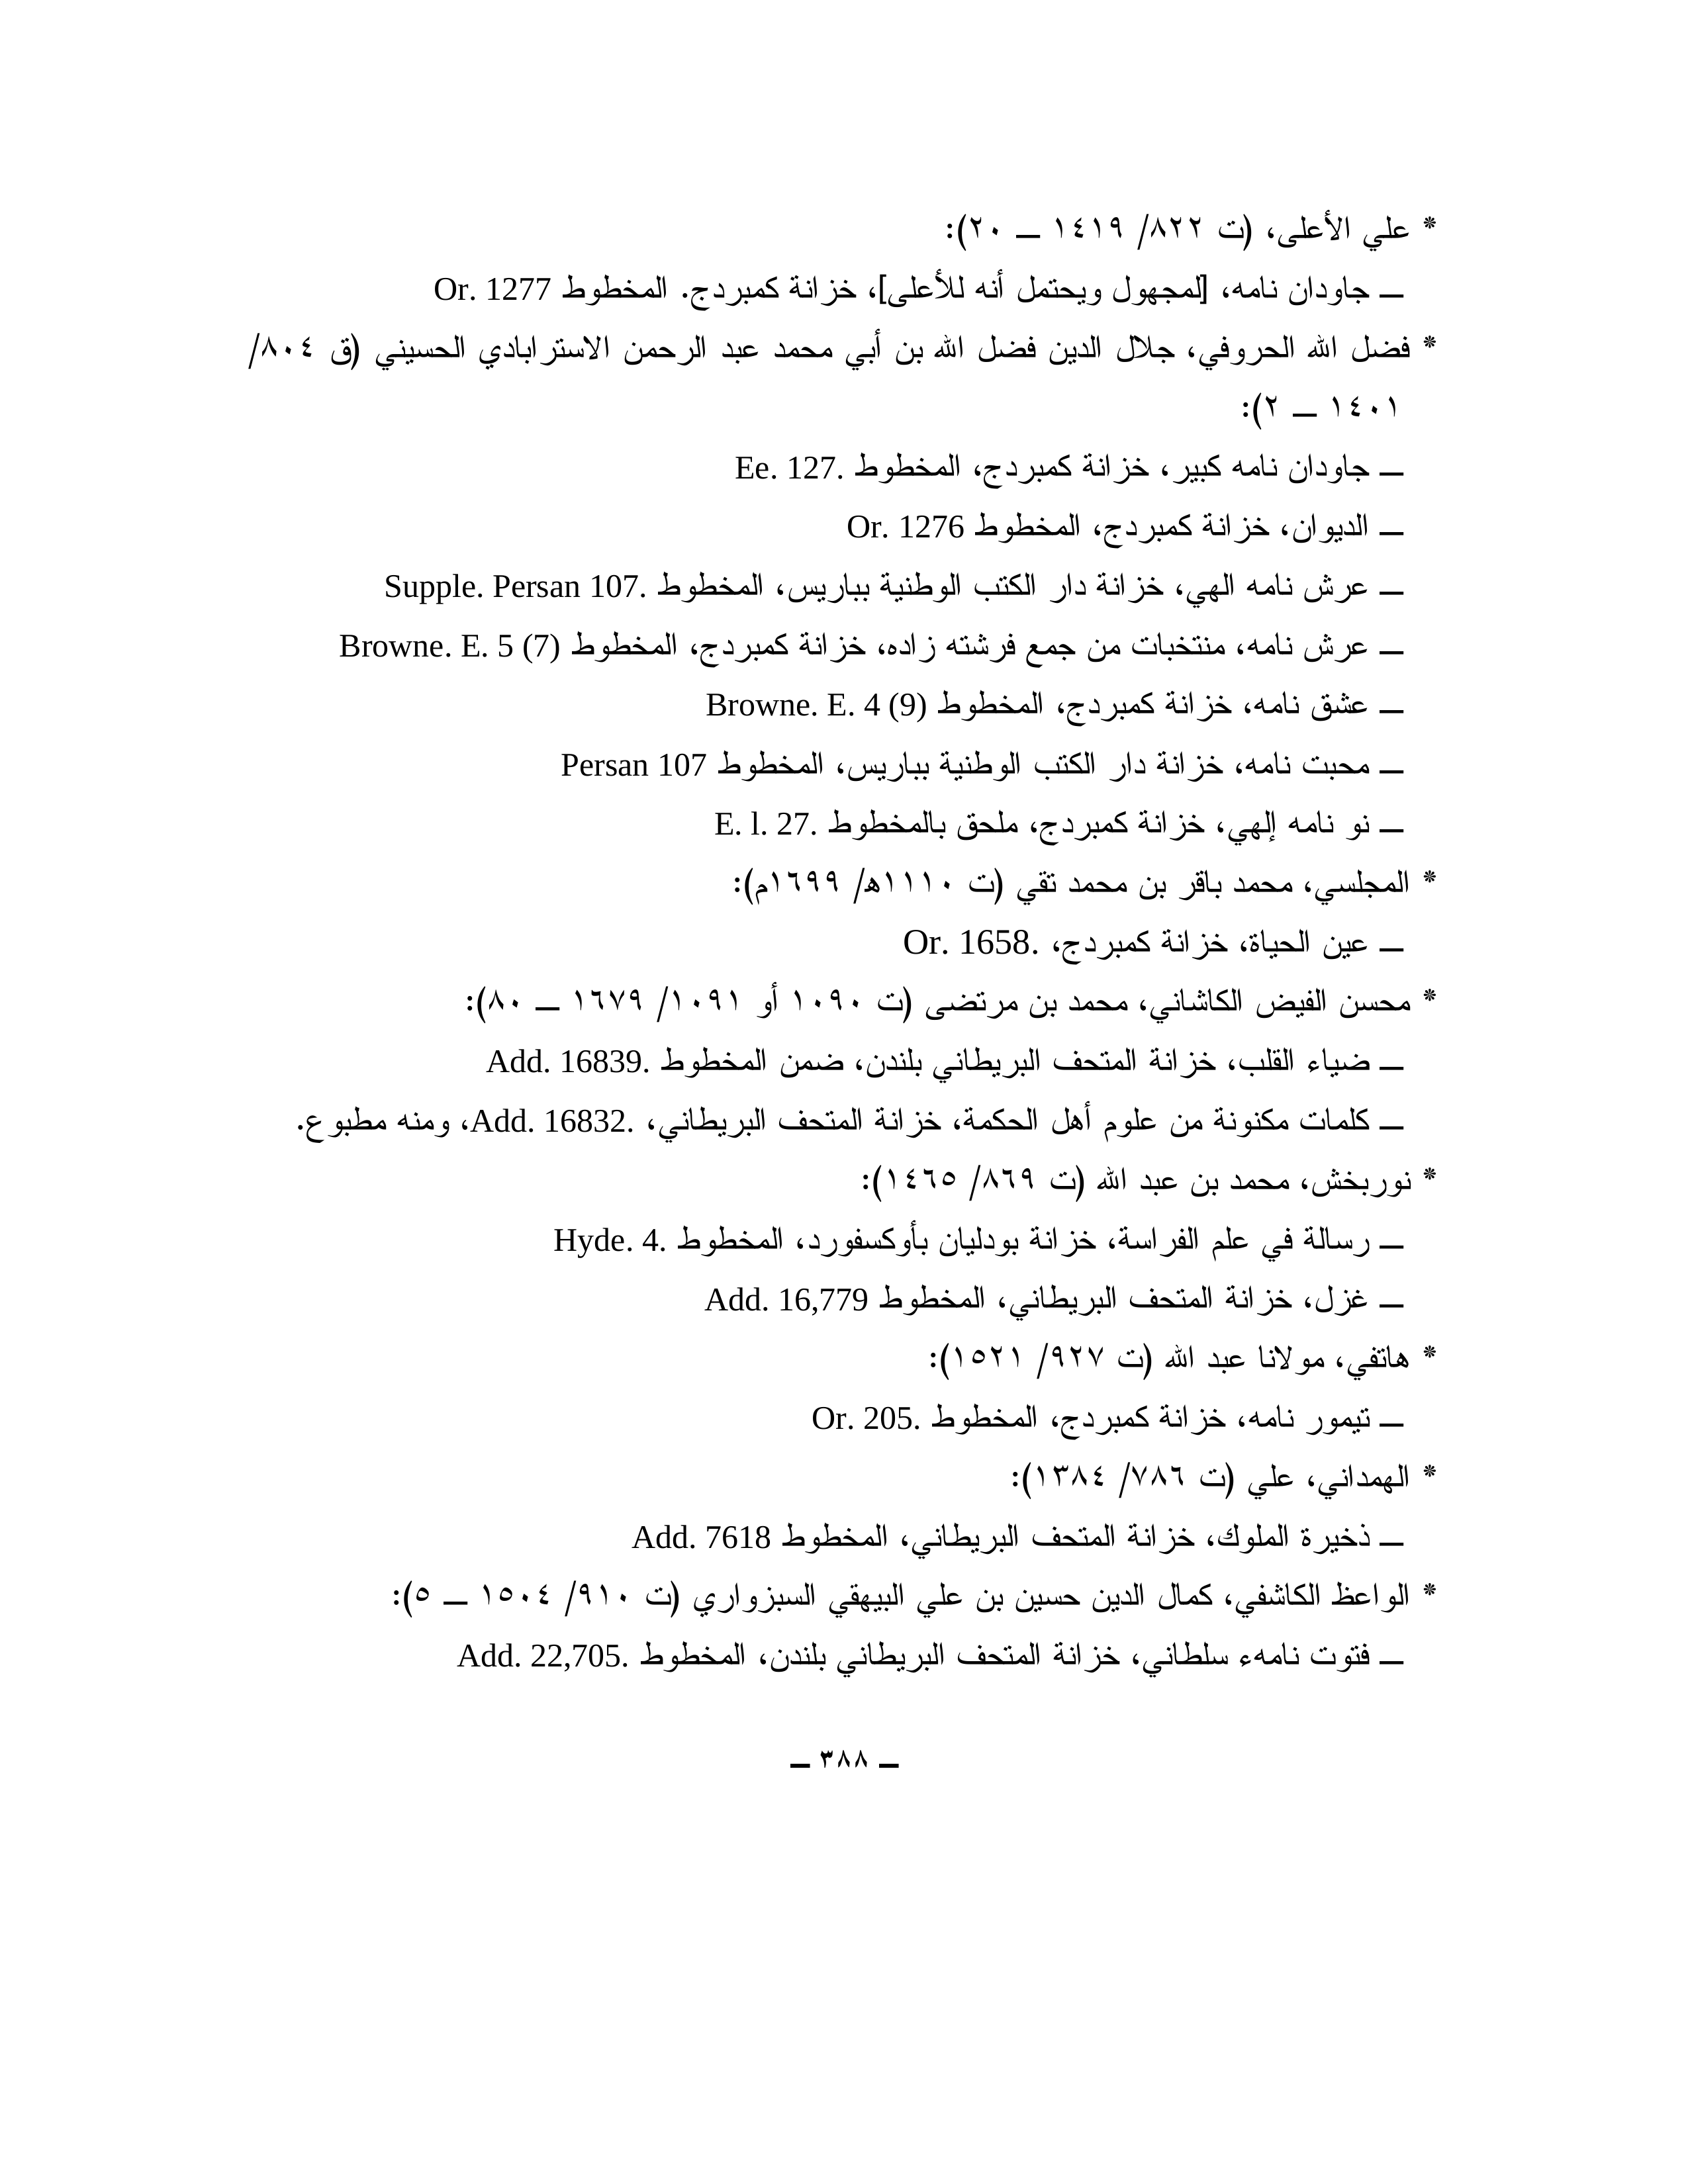 * علي الأعلى، (ت ٨٢٢/ ١٤١٩ ــ ٢٠):
ــ جاودان نامه، [لمجهول ويحتمل أنه للأعلى]، خزانة كمبردج. المخطوط Or. 1277
* فضل الله الحروفي، جلال الدين فضل الله بن أبي محمد عبد الرحمن الاسترابادي الحسيني (ق ٨٠٤/
١٤٠١ ــ ٢):
ــ جاودان نامه كبير، خزانة كمبردج، المخطوط Ee. 127.
ــ الديوان، خزانة كمبردج، المخطوط Or. 1276
ــ عرش نامه الهي، خزانة دار الكتب الوطنية بباريس، المخطوط Supple. Persan 107.
ــ عرش نامه، منتخبات من جمع فرشته زاده، خزانة كمبردج، المخطوط Browne. E. 5 (7)
ــ عشق نامه، خزانة كمبردج، المخطوط Browne. E. 4 (9)
ــ محبت نامه، خزانة دار الكتب الوطنية بباريس، المخطوط Persan 107
ــ نو نامه إلهي، خزانة كمبردج، ملحق بالمخطوط E. l. 27.
* المجلسي، محمد باقر بن محمد تقي (ت ١١١٠ه/ ١٦٩٩م):
ــ عين الحياة، خزانة كمبردج، Or. 1658.
* محسن الفيض الكاشاني، محمد بن مرتضى (ت ١٠٩٠ أو ١٠٩١/ ١٦٧٩ ــ ٨٠):
ــ ضياء القلب، خزانة المتحف البريطاني بلندن، ضمن المخطوط Add. 16839.
ــ كلمات مكنونة من علوم أهل الحكمة، خزانة المتحف البريطاني، Add. 16832.، ومنه مطبوع.
* نوربخش، محمد بن عبد الله (ت ٨٦٩/ ١٤٦٥):
ــ رسالة في علم الفراسة، خزانة بودليان بأوكسفورد، المخطوط Hyde. 4.
ــ غزل، خزانة المتحف البريطاني، المخطوط Add. 16,779
* هاتفي، مولانا عبد الله (ت ٩٢٧/ ١٥٢١):
ــ تيمور نامه، خزانة كمبردج، المخطوط Or. 205.
* الهمداني، علي (ت ٧٨٦/ ١٣٨٤):
ــ ذخيرة الملوك، خزانة المتحف البريطاني، المخطوط Add. 7618
* الواعظ الكاشفي، كمال الدين حسين بن علي البيهقي السبزواري (ت ٩١٠/ ١٥٠٤ ــ ٥):
ــ فتوت نامهء سلطاني، خزانة المتحف البريطاني بلندن، المخطوط Add. 22,705.
ــ ٣٨٨ ــ